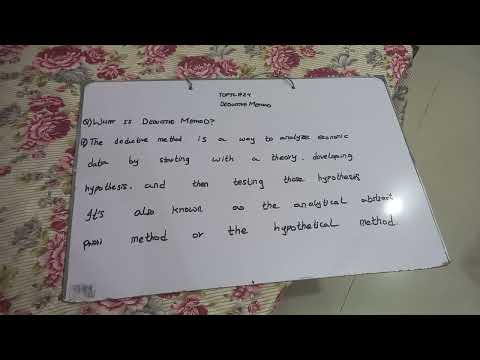 TOPIC #24
DEDUCTIVE METHOD
Q) WHAT IS DEDUCTIVE METHOD?
A) The deductive method is a way to analyze economic
data by starting with a theory, developing
hypothesis, and then testing those hypothesis
It's also known as the analytical abstract
method or the hypothetical method.